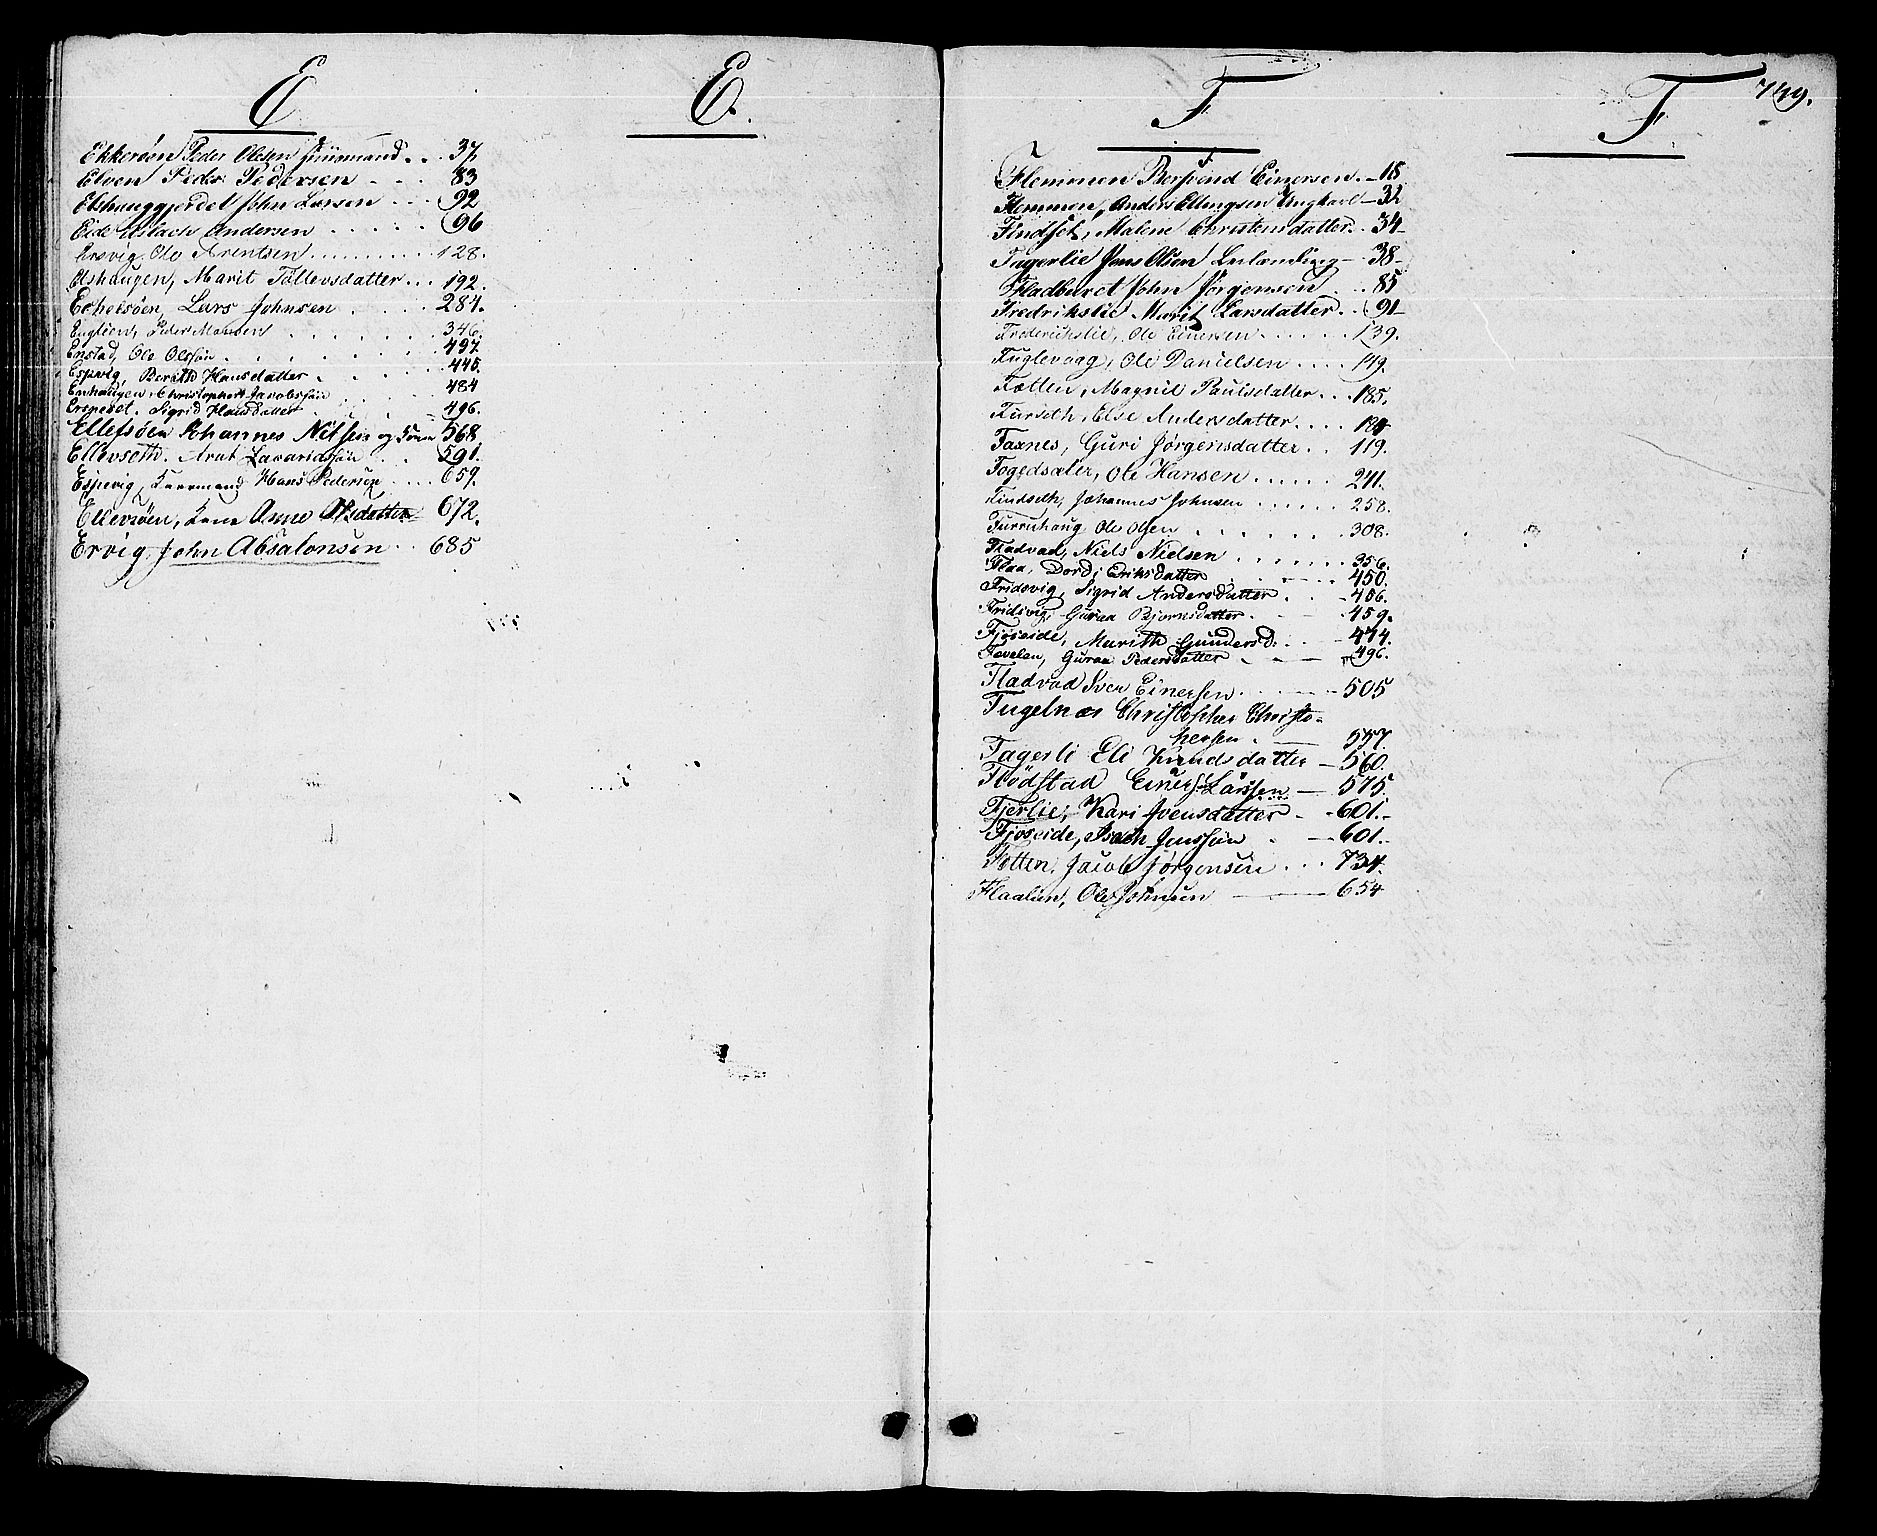 E
Ekkerøen Peder Olesen Huusmand . . . 37
Elven Peder Pedersen . . . 83
Elshauggjerdet John Larsen . . . 92
Eide Andersen . . . . . 96
Ole Arentsen . . . . . . . . . . 128.
Elshaugen, Marit Tollevsdatter . . . 192.
Lars Johnsen . . . . . 284.
Peder Monsen . . . . . . 346.
Enstad, Ole Olssøn . . . . . . 497.
Espvig, Berith Hansdatter . . . . 445.
Enhaugen, Christopher Jacobssøn . . . 484
Sigrid Hansdatter . . . . 496.
Ellefsøen Johannes Nilsen og Kone 568.
Ellevseth. Arnt . . . 591.
Espevig, Hans Pedersen . . . . 659.
Ellevsøen, Kone Anne 672.
Ervig, John Absalonsen . . 685
E.
F
Flemmen Bersvend Einersen . - 18
Flemmen, Anders Ellingsen Ungkarl - 32
Findset, Malene Christensdatter . . 34-
Fagerlie Jens Olsen - 38-
Fladburet John Jørgensen . . . 85
Fredrikslie Marit Larsdatter . . 91-
Frederikslie, Ole Einersen . . . . . . 139.
Fuglevaag, Ole Danielsen . . . . 149.
Fætten, Magnil Paulsdatter . . . 185.
Furseth, Else Andersdatter . . . .
Faxnes, Guri Jørgensdatter . . 119.
Fogedsæter, Ole Hansen . . . . . . 241.
Findseth, Johannes Johnsen . . . . . . 258.
Furruhaug Ole Olsen . . . . . . . 308.
Fladvad, Niels Nielsen . . . . . . . 356.
Flaa, Dordi Eriksdatter . . - - 450.
Fridsvig, Sigrid Andersdatter . . - 456.
Fridsvig, Guraa Bjørnsdatter . - - 459.
Fjøseide, Marith Gundersd. . . - 474.
Guraa Pedersdatter - - 496.
Fladvad Iver Einersen . . - - 505
Fugelnæs Christopher Christo=
hersen . - 557.
Fagerli Eli Knudsdatter - 560.
Flødstad Einer Larssen - 575.
Fjerlie, Kari Svensdatter - - 601.-
Fjøseide, Isach Jenssøn . - 601.-
Fætten, Jacob Jørgensen . . . 734.
Flaalien, Ole Johnsen - - 654
F
749.